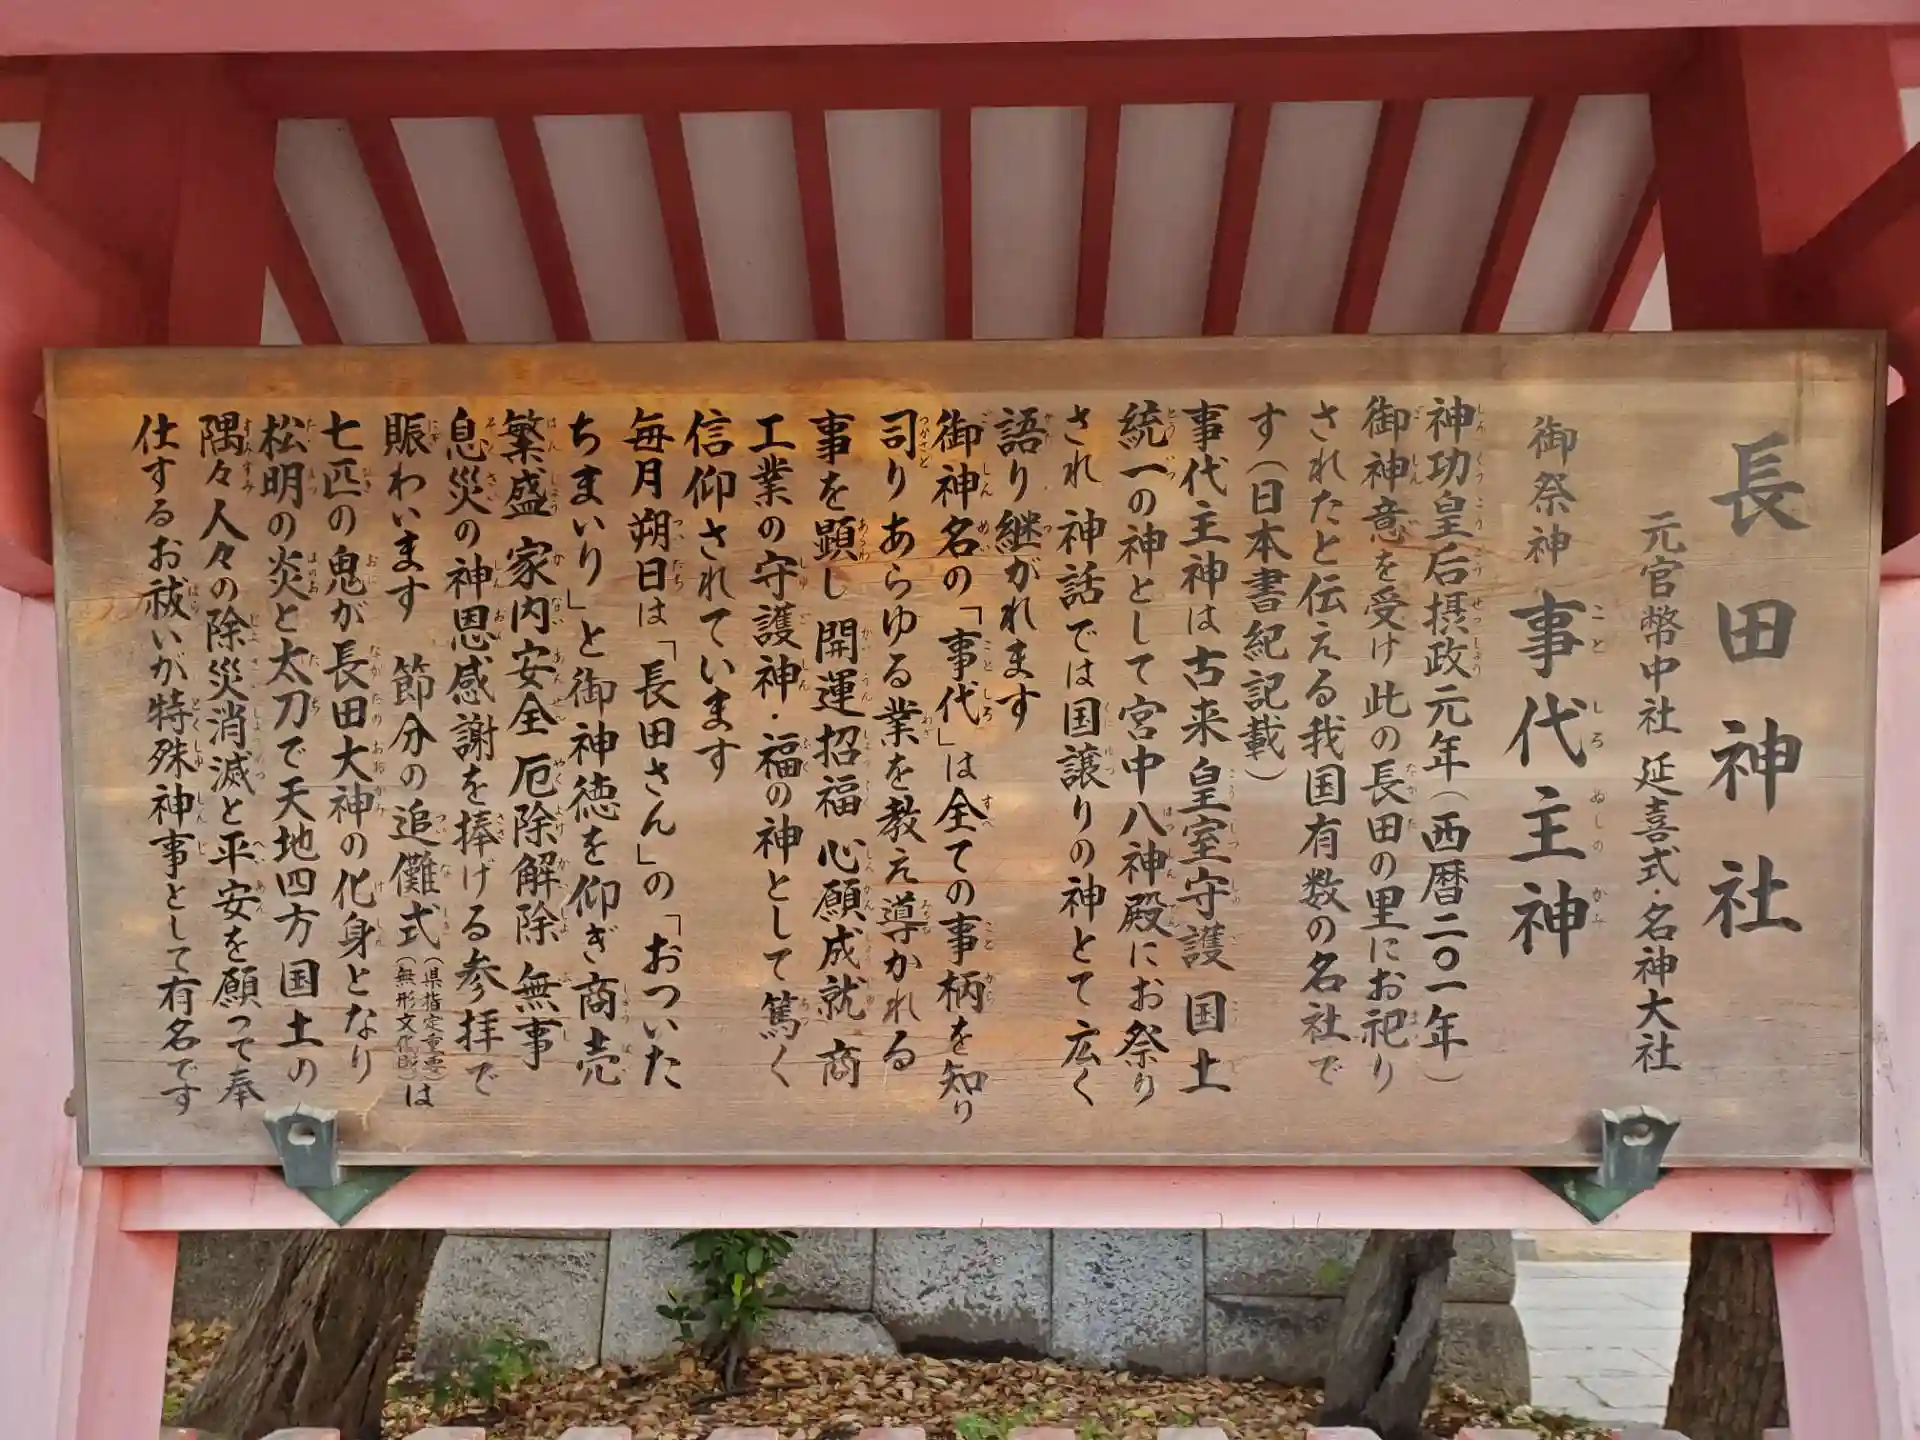 長田神社
元官幣中社 延喜式・名神大社
御祭神 事代主神
神功皇后摂政元年(西暦二〇一年)
御神意を受け此の長田の里にお祀り
されたと伝える我国有数の名社で
す(日本書紀記載)
事代主神は古来皇室守護 国土
統一の神として宮中八神殿にお祭り
され 神話では国譲りの神とて広く
語り継がれます
御神名の「事代」は全ての事柄を知り
司りあらゆる業を教え導かれる
事を顕し開運招福 心願成就 商
工業の守護神・福の神として篤く
信仰されています
毎月朔日は「長田さん」の「おついた
ちまいり」と御神徳を仰ぎ商売
繁盛 家内安全 厄除解除 無事
息災の神恩感謝を捧げる参拝で
賑わいます 節分の追儺式(県指定重要)(無形文化財)は
七匹の鬼が長田大神の化身となり
松明の炎と太刀で天地四方国土の
隅々人々の除災消滅と平安を願って奉
仕するお祓いが特殊神事として有名です